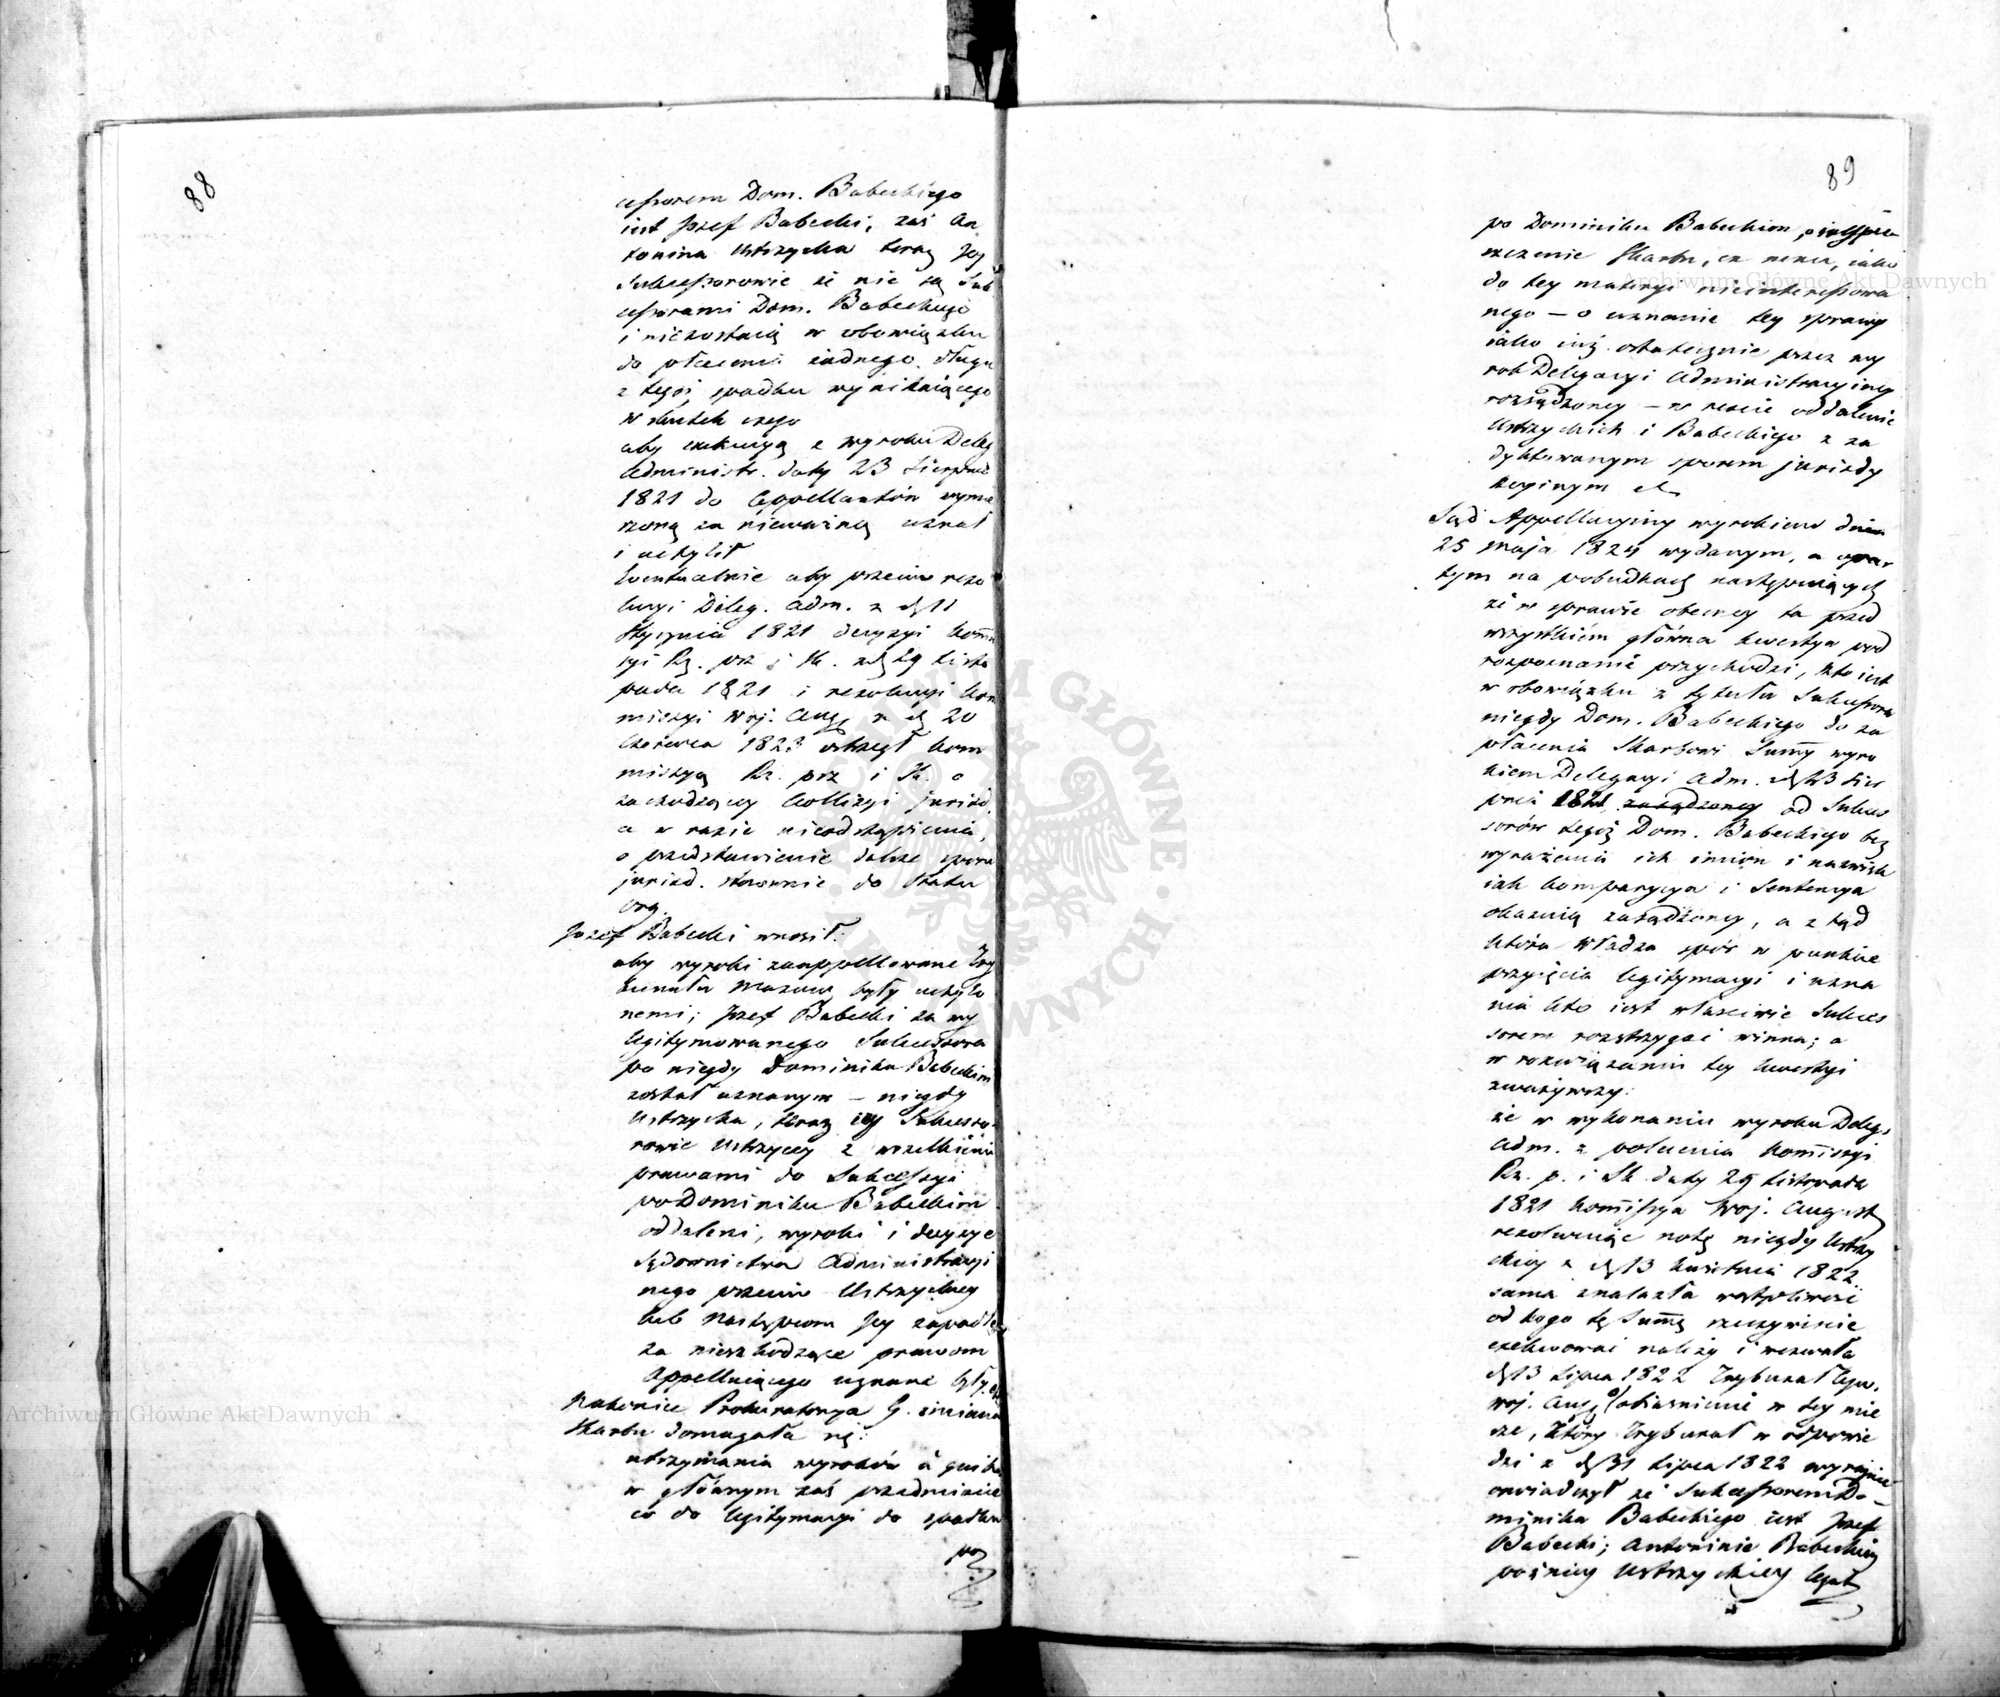 88
cessorem Dom. Babeckiego
iest Józef Babecki, zaś An
tonina Ustrzycka teraz Jey
Sukcessorowie że nie są Suk
cessorami Dom. Babeckiego
i niezostaią w obowiązku
do płacenia żadnego długu
z tegoż spadku wynikaiącego
w skutek czego
aby exekucyą z wyroku Deleg
Administr. daty 23 Sierpnia
1821 do Appellantów wymie
rzoną za nieważną uznał
i uchylił
Ewentualnie aby przeciw rezo
lucyi Deleg. Adm. z d. 11
Stycznia 1821 decyzyi Kommis
syi Rz. prz i Sk. z d. 29 Listo
pada 1821 i rezolucyi Kom
missyi Woj. Aug. z d. 20
Czerwca 1823 ostrzegł Kom
missyą Rz. prz i Sk. o
zachodzącey Kollizyi jurisd.
a w razie nieodstąpienia,
o przedstawienie dalsze sporu
jurisd. stosownie do Statu
org.
Józef Babecki wnosił:
aby wyroki zaappellowane Try
bunału Mazow. były uchylo
nemi; Józef Babecki za wy
legitymowanego Sukcessora
po niegdy Dominiku Babeckim
został uznanym – niegdy
Ustrzycka, teraz iey Sukcesso
rowie Ustrzyccy z wszelkiemi
prawami do Sukcessyi
po Dominiku Babeckim
oddaleni, wyroki i decyzye
Sądownictwa Administracyi
nego przeciw Ustrzyckiey
lub Następcom Jey zapadłe
za nieszkodzące prawom
Appelluiącego uznane były.
Nakoniec Prokuratorya G. imieniem
Skarbu domagała się:
utrzymania wyroków a quibus
w głównym zaś przedmiocie
co do legitymacyi do spadku
po
89
po Dominiku Babeckim, o
Skarbu, ex nexu, iako
do tey materyi nieinteressowa
nego – o uznanie tey sprawy
iako iuż ostatecznie przez wy
rok Delegacyi Administracyiney
rozsądzoney – w reszcie oddalenie
Ustrzyckich i Babeckiego z za
dyktowanym sporem jurisdy
kcyinym
Sąd Appellacyiny wyrokiem dnia
25 Maja 1824 wydanym, a opar
tym na pobudkach następuiących
że w sprawie obecney ta przed
wszystkiém główna kwestya pod
rozpoznanie przychodzi, kto iest
w obowiązku z tytułu Sukcessora
niegdy Dom. Babeckiego do za
płacenia Skarbowi Summy wyro
kiem Delegacyi Adm. z d. 23 Sier
pnia 1821 zasądzoney od Sukces
sorów tegoż Dom. Babeckiego bez
wyrażenia ich imion i nazwisk
iak komparycya i Sentencya
okazuią zasądzoney, a z tąd
która Władza spór w punkcie
przyięcia legitymacyi i uzna
nia kto iest właściwie Sukces
sorem rozstrzygać winna; a
w rozwiązaniu tey kwestyi
zważywszy:
że w wykonaniu wyroku Deleg.
Adm. z polecenia Kommissyi
Rz. p. i Sk. daty 29 Listopada
1821 Kommissya Woj. August.
rezolwuiąc notę niegdy Ustrzy
ckiey z d. 13 Kwietnia 1822
sama znalazła wątpliwość
od kogo tę Summę rzeczywiście
exekwować należy i wezwała
d. 13 Lipca 1822 Trybunał Cyw.
Woj. Aug. o obiasnienie w tey mie
rze, który Trybunał w odpowie
dzi z d. 31 Lipca 1822 wyraźnie
oświadczył że Sukcessorem Do
minika Babeckiego iest Józef
Babecki; Antoninie Babeckiey
późniey Ustrzyckiey legat
Archiwum Główne Akt Dawnych
Archiwum Główne Akt Dawnych
ARCHIWUM GŁÓWNE AKT DAWNYCH